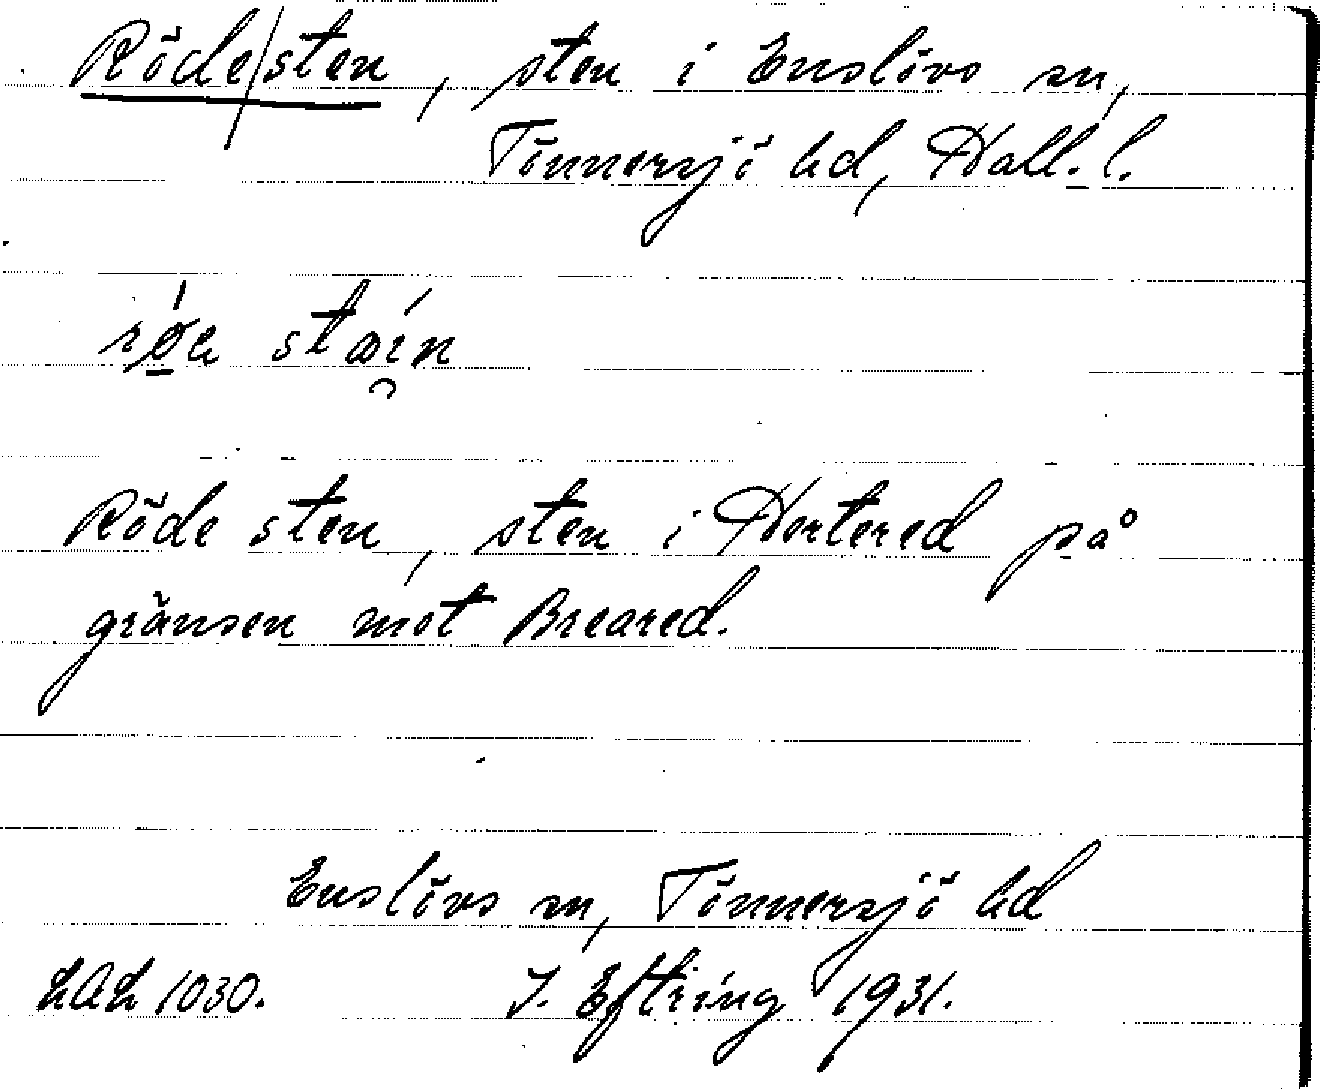 Röde/sten, sten i Enslövs sn,
Tönnersjö hd, Hall. l.
sten
Röde sten, sten i Hertered på
gränsen mot Breared.
Enslövs sn, Tönnersjö hd
LAL 1030. J. Eftring 1931.